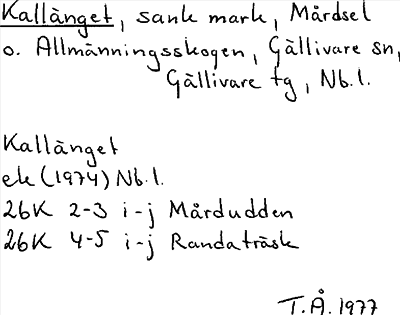 Kallänget, sank mark, Mårdsel
o. Allmänningsskogen, Gällivare sn,
Gällivare tg, Nb.l.
Kallänget
ek (1974) Nb.l.
26K 2-3 i-j Mårdudden
26K 4-5 i-j Randaträsk
T.Å. 1977